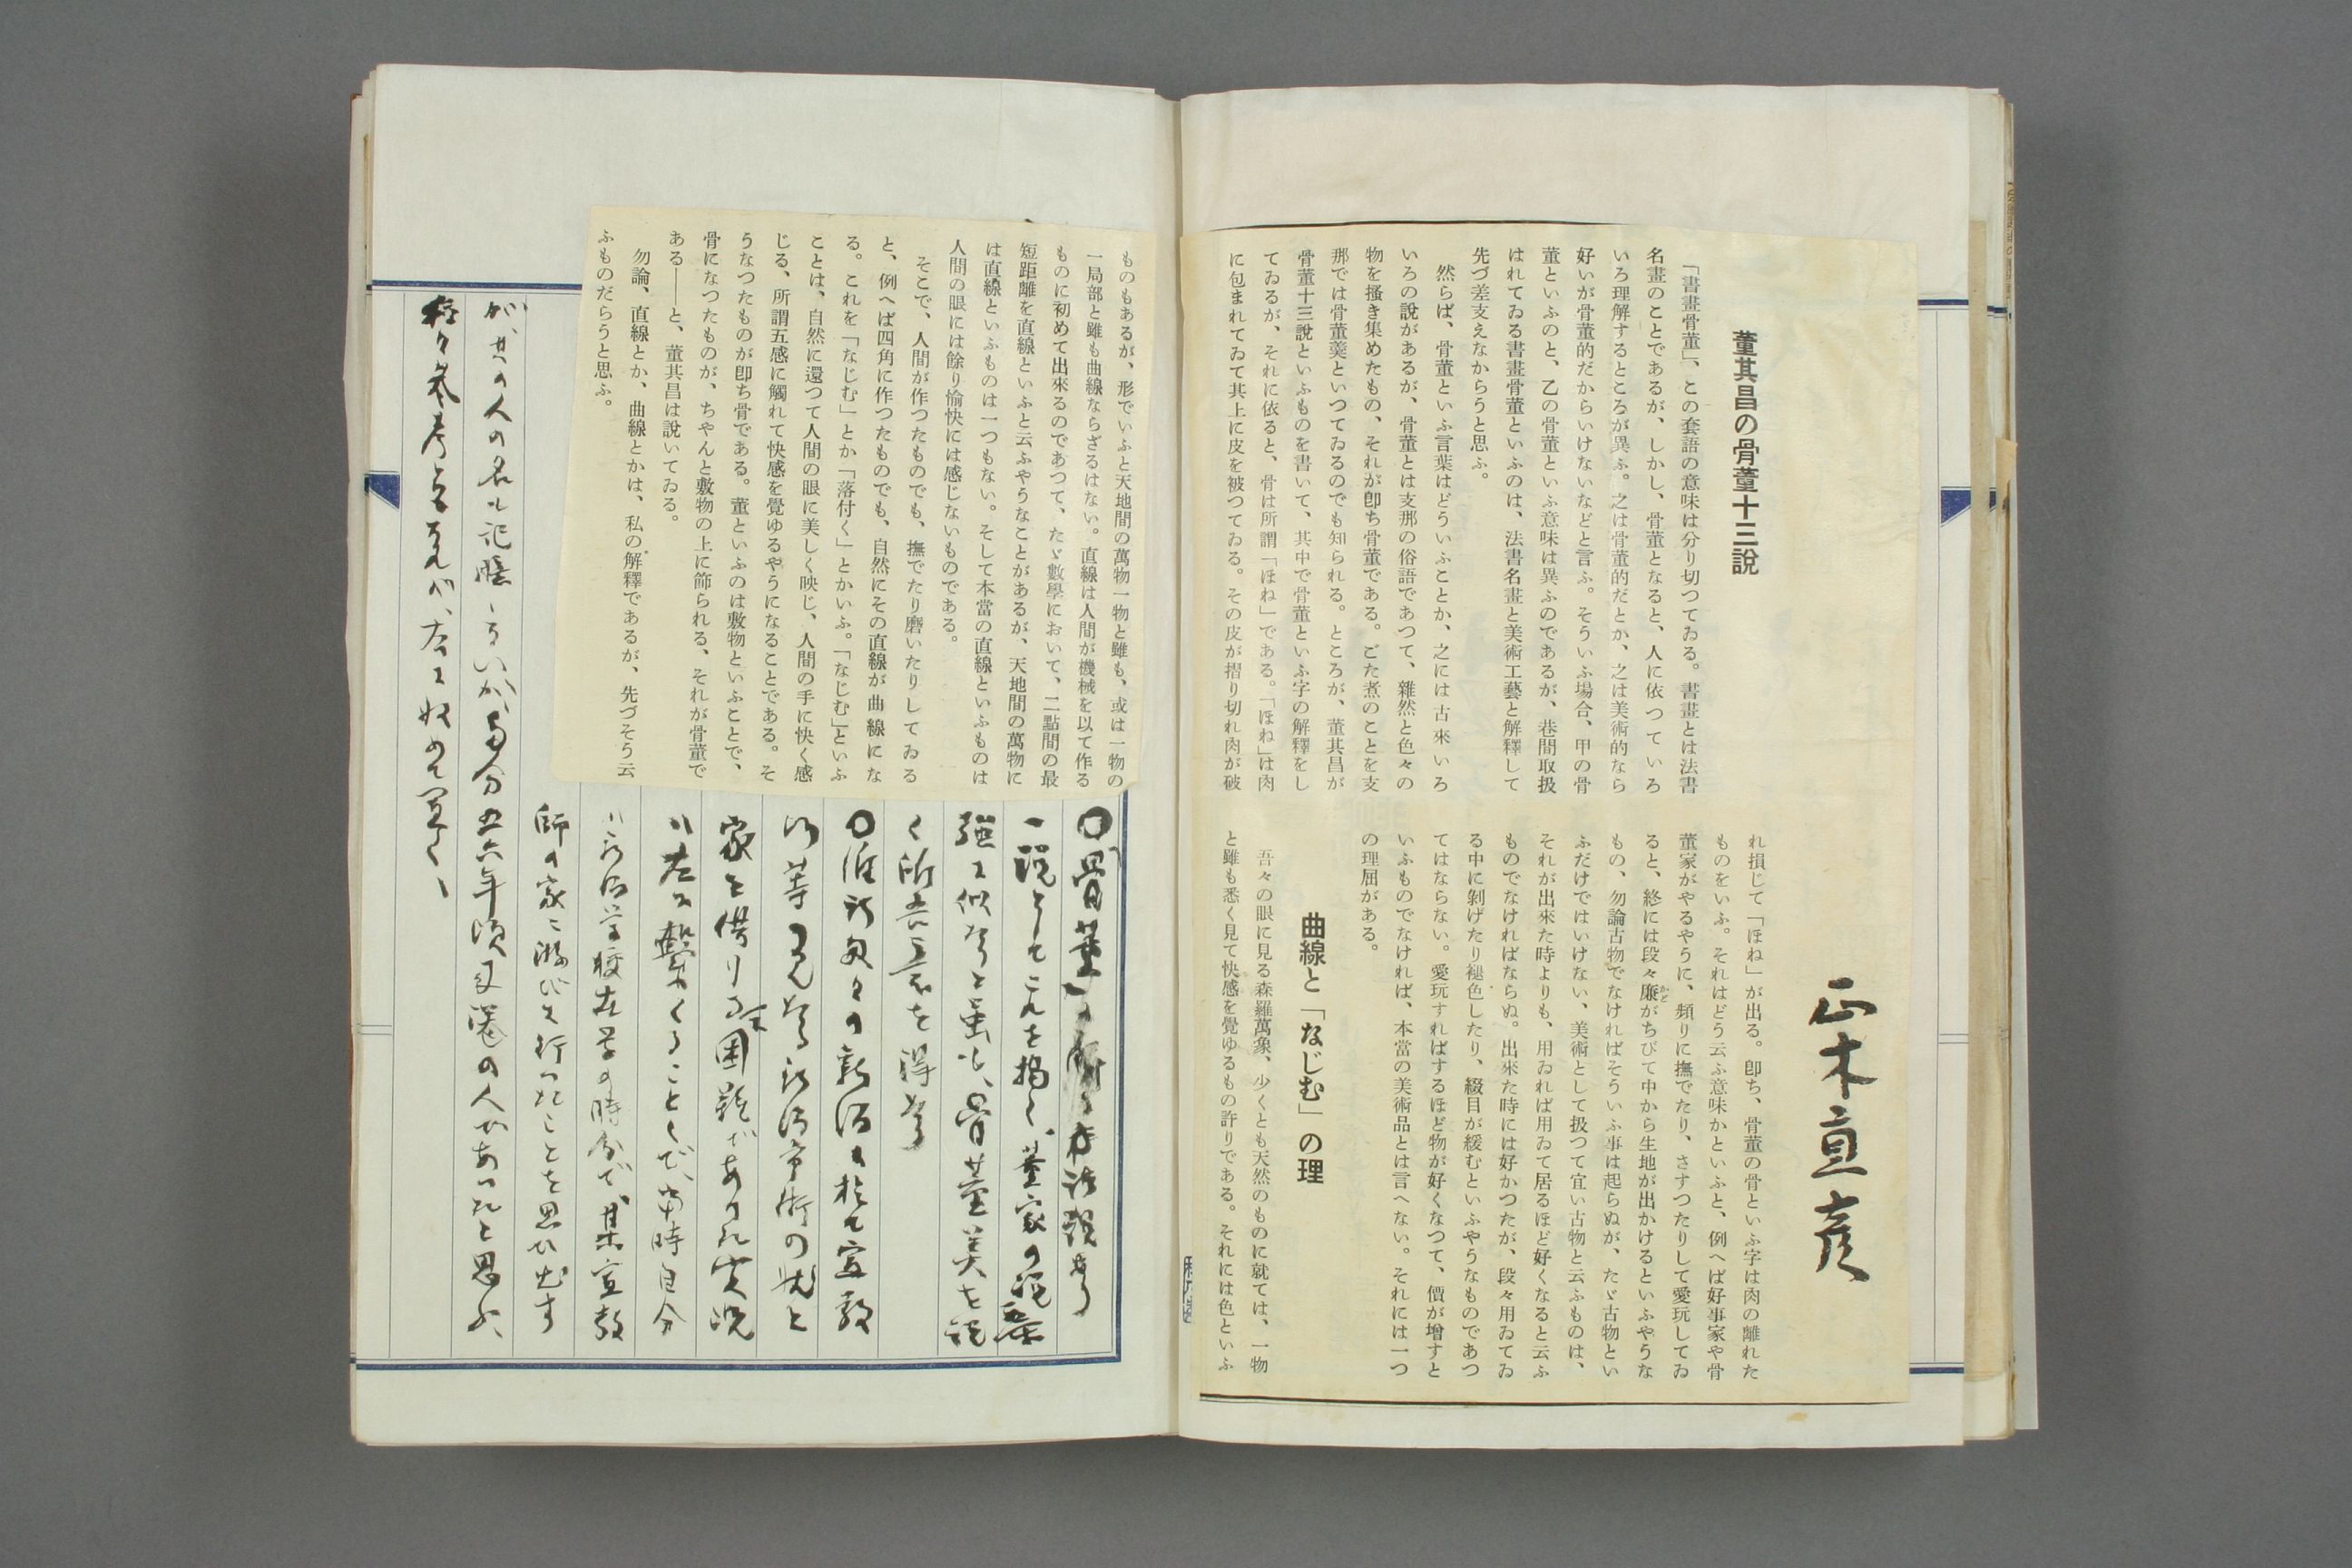 正木直彦
董其昌の骨董十三說
「書畫骨董」、この套語の意味は分り切つてゐる。書畫とは法書
名畫のことであるが、しかし、骨董となると、人に依つていろ
いろ理解するところが異ふ。之は骨董的だとか、之は美術的なら
好いが骨董的だからいけないなどと言ふ。そういふ場合、甲の骨
董といふのと、乙の骨董といふ意味は異ふのであるが、巷間取扱
はれてゐる書畫骨董といふのは、法書名畫と美術工藝と解釋して
先づ差支えなからうと思ふ。
然らば、骨董といふ言葉はどういふことか、之には古來いろ
いろの說があるが、骨董とは支那の俗語であつて、雜然と色々の
物を搔き集めたもの、それが卽ち骨董である。ごた煮のことを支
那では骨董羹といつてゐるのでも知られる。ところが、董其昌が
骨董十三說といふものを書いて、其中で骨董といふ字の解釋をし
てゐるが、それに依ると、骨は所謂「ほね」である。「ほね」は肉
に包まれてゐて其上に皮を被つてゐる。その皮が摺り切れ肉が破
れ損じて「ほね」が出る。卽ち、骨董の骨といふ字は肉の離れた
ものをいふ。それはどう云ふ意味かといふと、例へば好事家や骨
董家がやるやうに、頻りに撫でたり、さすつたりして愛玩してゐ
ると、終には段々廉がちびて中から生地が出かけるといふやうな
もの、勿論古物でなければそういふ事は起らぬが、たゞ古物とい
ふだけではいけない、美術として扱つて宜い古物と云ふものは、
それが出來た時よりも、用ゐれば用ゐて居るほど好くなると云ふ
ものでなければならぬ。出來た時には好かつたが、段々用ゐてゐ
る中に剝げたり褪色したり、綴目が緩むといふやうなものであつ
てはならない。愛玩すればするほど物が好くなつて、價が增すと
いふものでなければ、本當の美術品とは言へない。それには一つ
の理屈がある。
曲線と「なじむ」の理
吾々の眼に見る森羅萬象、少くとも天然のものに就ては、一物
と雖も悉く見て快感を覺ゆるもの許りである。それには色といふ
ものもあるが、形でいふと天地間の萬物一物と雖も、或は一物の
一局部と雖も曲線ならざるはない。直線は人間が機械を以て作る
ものに初めて出來るのであつて、たゞ數學において、二點間の最
短距離を直線といふと云ふやうなことがあるが、天地間の萬物に
は直線といふものは一つもない。そして本當の直線といふものは
人間の眼には餘り愉快には感じないものである。
そこで、人間が作つたものでも、撫でたり磨いたりしてゐる
と、例へば四角に作つたものでも、自然にその直線が曲線にな
る。これを「なじむ」とか「落付く」とかいふ。「なじむ」といふ
ことは、自然に還つて人間の眼に美しく映じ、人間の手に快く感
じる、所謂五感に觸れて快感を覺ゆるやうになることである。そ
うなつたものが卽ち骨である。董といふのは敷物といふことで、
骨になつたものが、ちやんと敷物の上に飾られる、それが骨董で
ある――と、董其昌は說いてゐる。
勿論、直線とか、曲線とかは、私の解釋であるが、先づそう云
ふものだらうと思ふ。
一說としてこれを揭く、董家の說
強に似たりと雖も、骨董美を說
く所吾意を得たり
家を借りる困難であつた実況
ハ左に繫くることくで、當時自分
ハ新潟学校在学の時分で某宣教
師の家に遊びに行つたことを思ひ出す
が、其の人の名ハ記臆しないが多分五六年頃引還の人であつたと思ふ、
種々參考となるが、左に收めて置く、